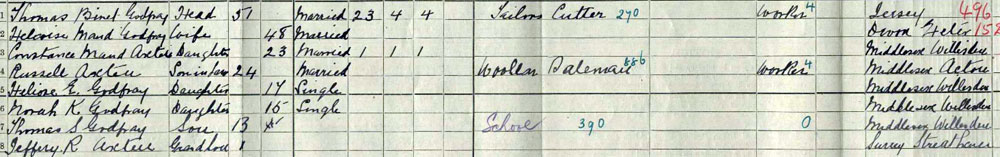 1 Thomas Binet Godfray Head 51 Married 23 4 4 Tailors Cutter 290 Worker 4 Jersey 496
2 Heloise Maud Godfray Wife 48 Married Devon Exeter 152
3 Constance Maud Axten Daughter 23 Married 1 1 1 Middlesex Willesden
4 Russell Axten Son in law 24 Married Woollen Salesman 886 Worker 4 Middlesex Acton
5 Heloise E. Godfray Daughter 17 Single Middlesex Willesden
6 Norah K Godfray Daughter 15 Single Middlesex Willesden
7 Thomas S Godfray Son 13 School 390 0 Middlesex Willesden
8 Jeffery. R Axten Grandson 1 Surrey Streatham